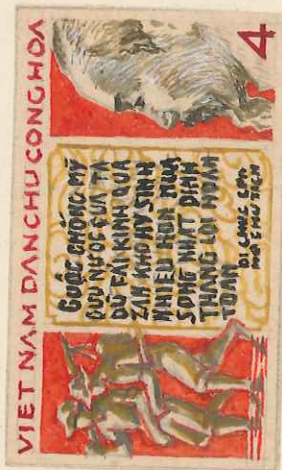 VIET NAM DAN CHU CONG HOA
4
CUÔC CHỐNG MỸ
CUU NƯỚC CUA TA
DÙ FAI KINH QUA
ZAN KHO HY SINH
NHIỀU HON NUA
SONG NHAT DINH
THANG LOI HOAN
TOAN
DI CHUC CUA
HO CHU TICH